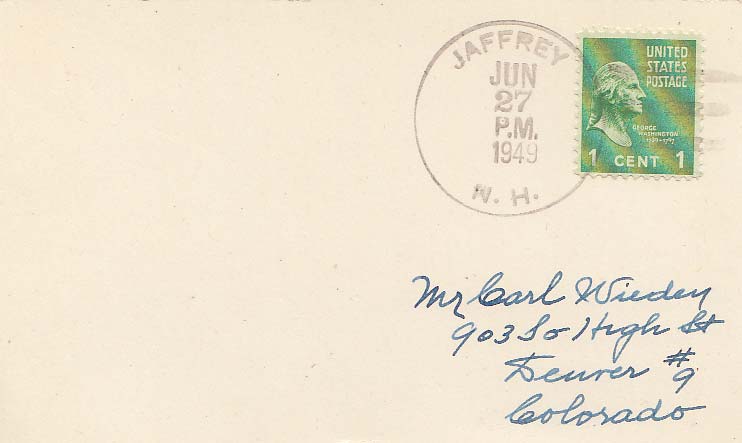 JAFFREY
JUN
27
P.M.
1949
N. H.
UNITED
STATES
POSTAGE
GEORGE
WASHINGTON
1789-1797
1 CENT 1
Mr Carl Wieden
903 So High St
Denver #9
Colorado